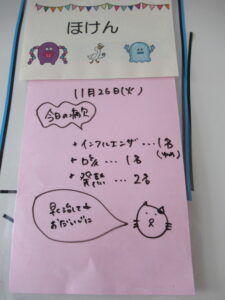 ほけん
11月26日(火)
今日の病欠
・インフルエンザ…1名
・咳 … 1名
・発熱 … 2名
早く治してね
おだいじに